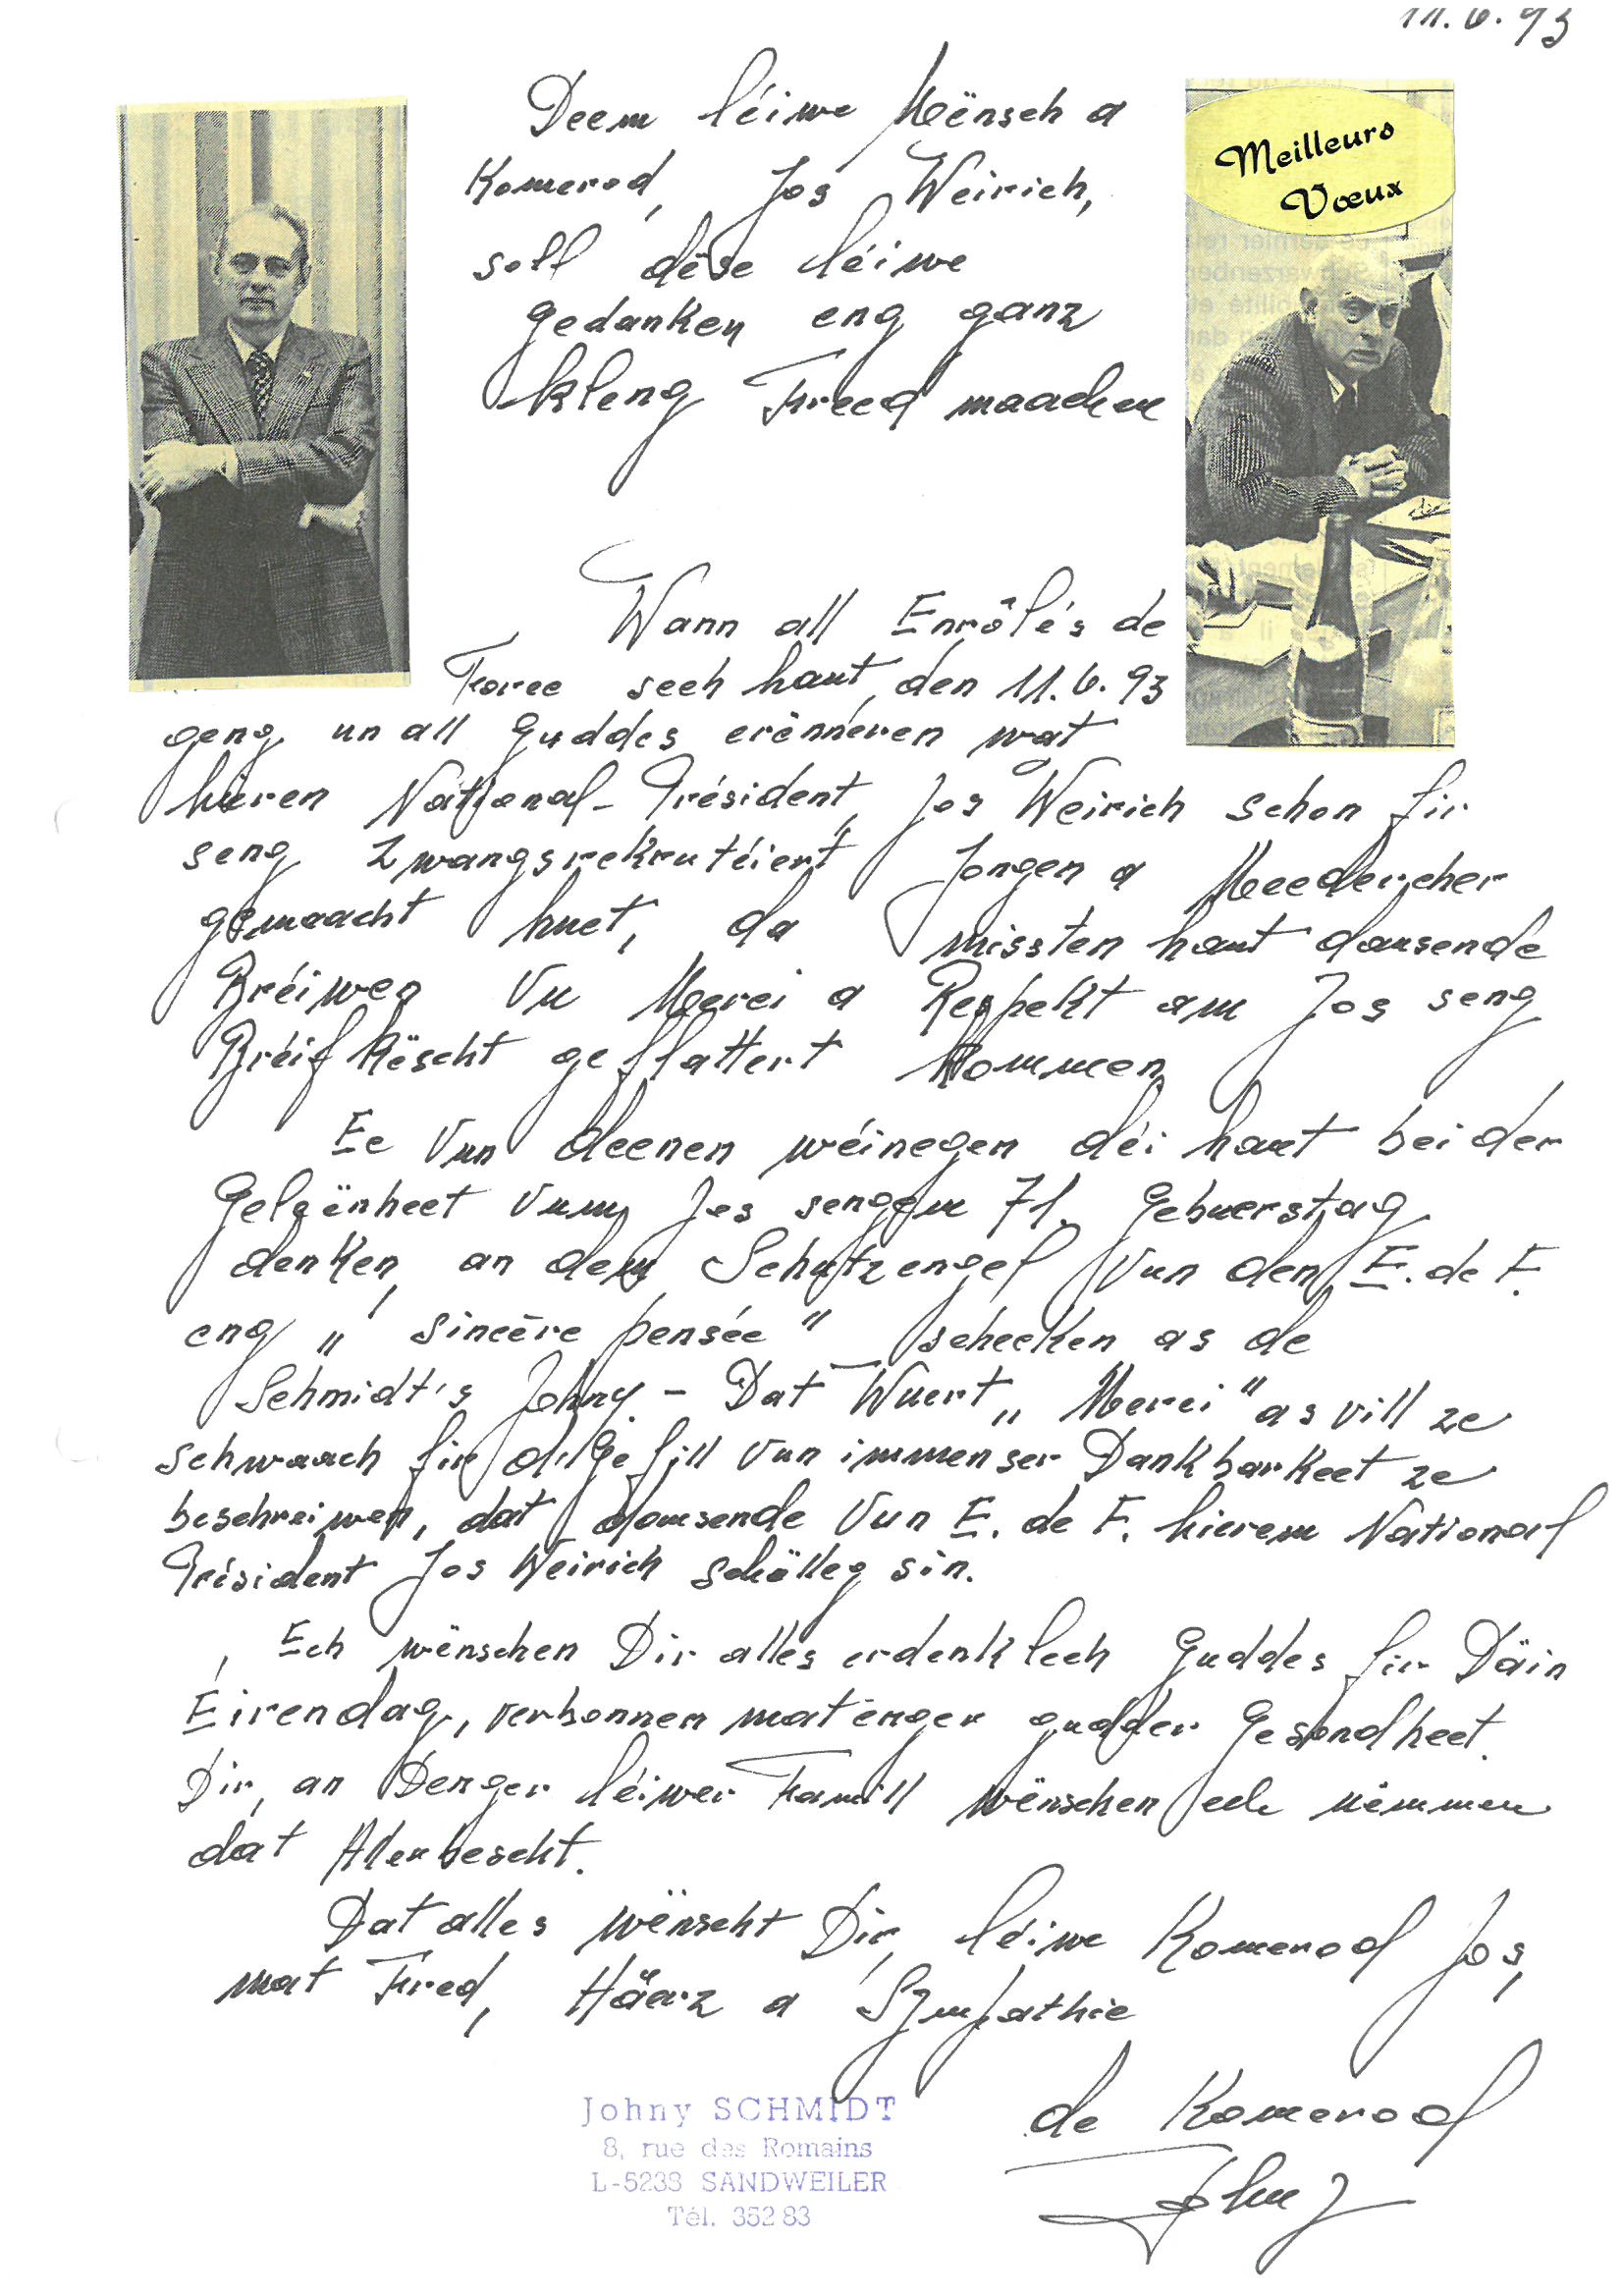 11.6.93
Deem léiwe Mënsch a
Komerod, Jos Weirich,
soll dëse léiwe
Gedanken eng ganz
kleng Freed maachen
Meilleurs
Vœux
Wann all Enrôlés de
Force sech haut, den 11.6.93
geng un all Guddes erënneren wat
hiren National-Président, Jos Weirich schon fir
seng "Zwangsrekrutéiert" Jongen a Meedercher
gemaacht huet, da missten haut dausende
Bréiwer Vu Merci a Respekt am Jos seng
Bréifkëscht geflattert kommen
Ee Vun deenen wéinegen déi haut bei der
Gelgënheet Vum Jos sengem 71. Gebuerstag
denken, an dem Schutzengel Vun den E. de F.
eng "sincère pensée" schecken as de
Schmidt's Johny. - Dat Wuert "Merci" as vill ze
schwaach fir d'Gefill Vun immenser Dankbarkeet ze
beschreiwen, dat dausende Vun E. de F. hierem National
Président Jos Weirich schölleg sin.
Ech wënschen Dir alles erdenklech Guddes fir Däin
Eirendag, verbonnen mat enger gudder Gesondheet.
Dir, an Denger léiwer Famill wënschen ech nëmmen
dat Allerbescht.
Dat alles wënscht Dir, léiwe Komerod Jos,
mat Fred, Häerz a Sympathie
de Komerod
Johny
Johny SCHMIDT
8, rue des Romains
L-5233 SANDWEILER
Tél. 352 83